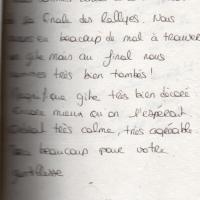 la finale des Rallyes. Nous
eu beaucoup de mal à trouver
gite mais au final nous
sommes très bien tombés !
gite très bien décoré
mieux qu'on l'espérait.
très calme, très agréable.
beaucoup pour votre
gentillesse